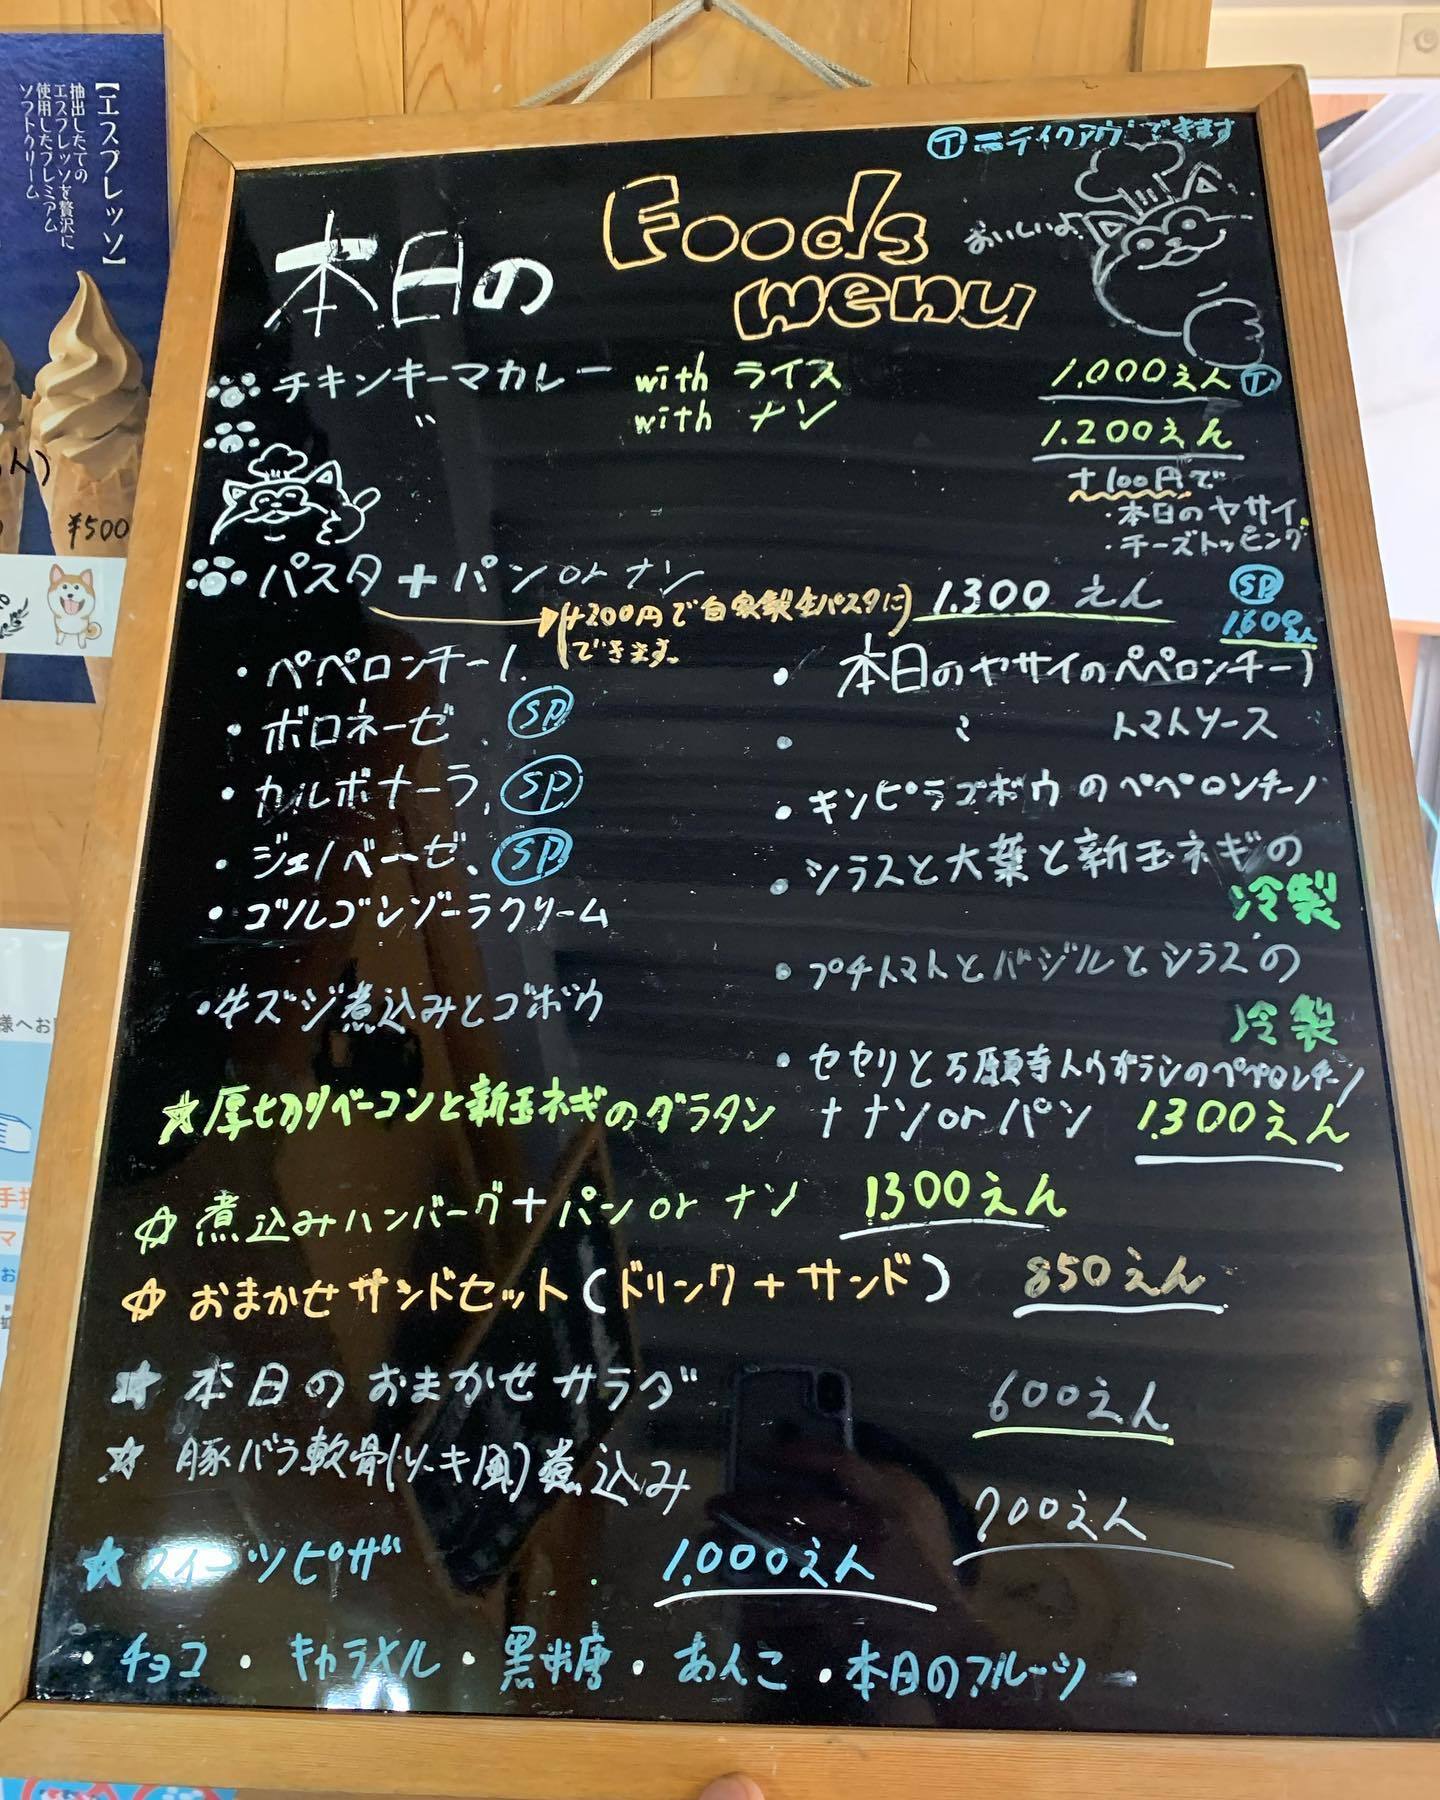 【エスプレッソ】
抽出したての
エスプレッソを贅沢に
使用したプレミアム
ソフトクリーム
¥500
Ⓣ=テイクアウトできます
本日の Foods menu
おいしいよ♪
チキンキーマカレー with ライス 1.000えん Ⓣ
〃 with ナン 1.200えん
+100円で
・本日のヤサイ
・チーズトッピング
パスタ+パン or ナン 1.300 えん SP 1.600えん
(+200円で自家製生パスタに
できます。)
・ペペロンチーノ
・ボロネーゼ SP
・カルボナーラ SP
・ジェノベーゼ SP
・ゴルゴンゾーラクリーム
・牛スジ煮込みとゴボウ
・本日のヤサイのペペロンチーノ
・〃 トマトソース
・キンピラゴボウのペペロンチーノ
・シラスと大葉と新玉ネギの
冷製
・プチトマトとバジルとシラスの
冷製
・セセリと万願寺トウガラシのペペロンチーノ
☆厚切りベーコンと新玉ネギのグラタン + ナン or パン 1.300えん
☆煮込みハンバーグ+パン or ナン 1300えん
☆おまかせサンドセット(ドリンク+サンド) 850えん
★本日のおまかせサラダ 600えん
☆豚バラ軟骨(ソーキ風)煮込み 700えん
★スイーツピザ 1.000えん
・チョコ ・キャラメル ・黒糖 ・あんこ ・本日のフルーツ